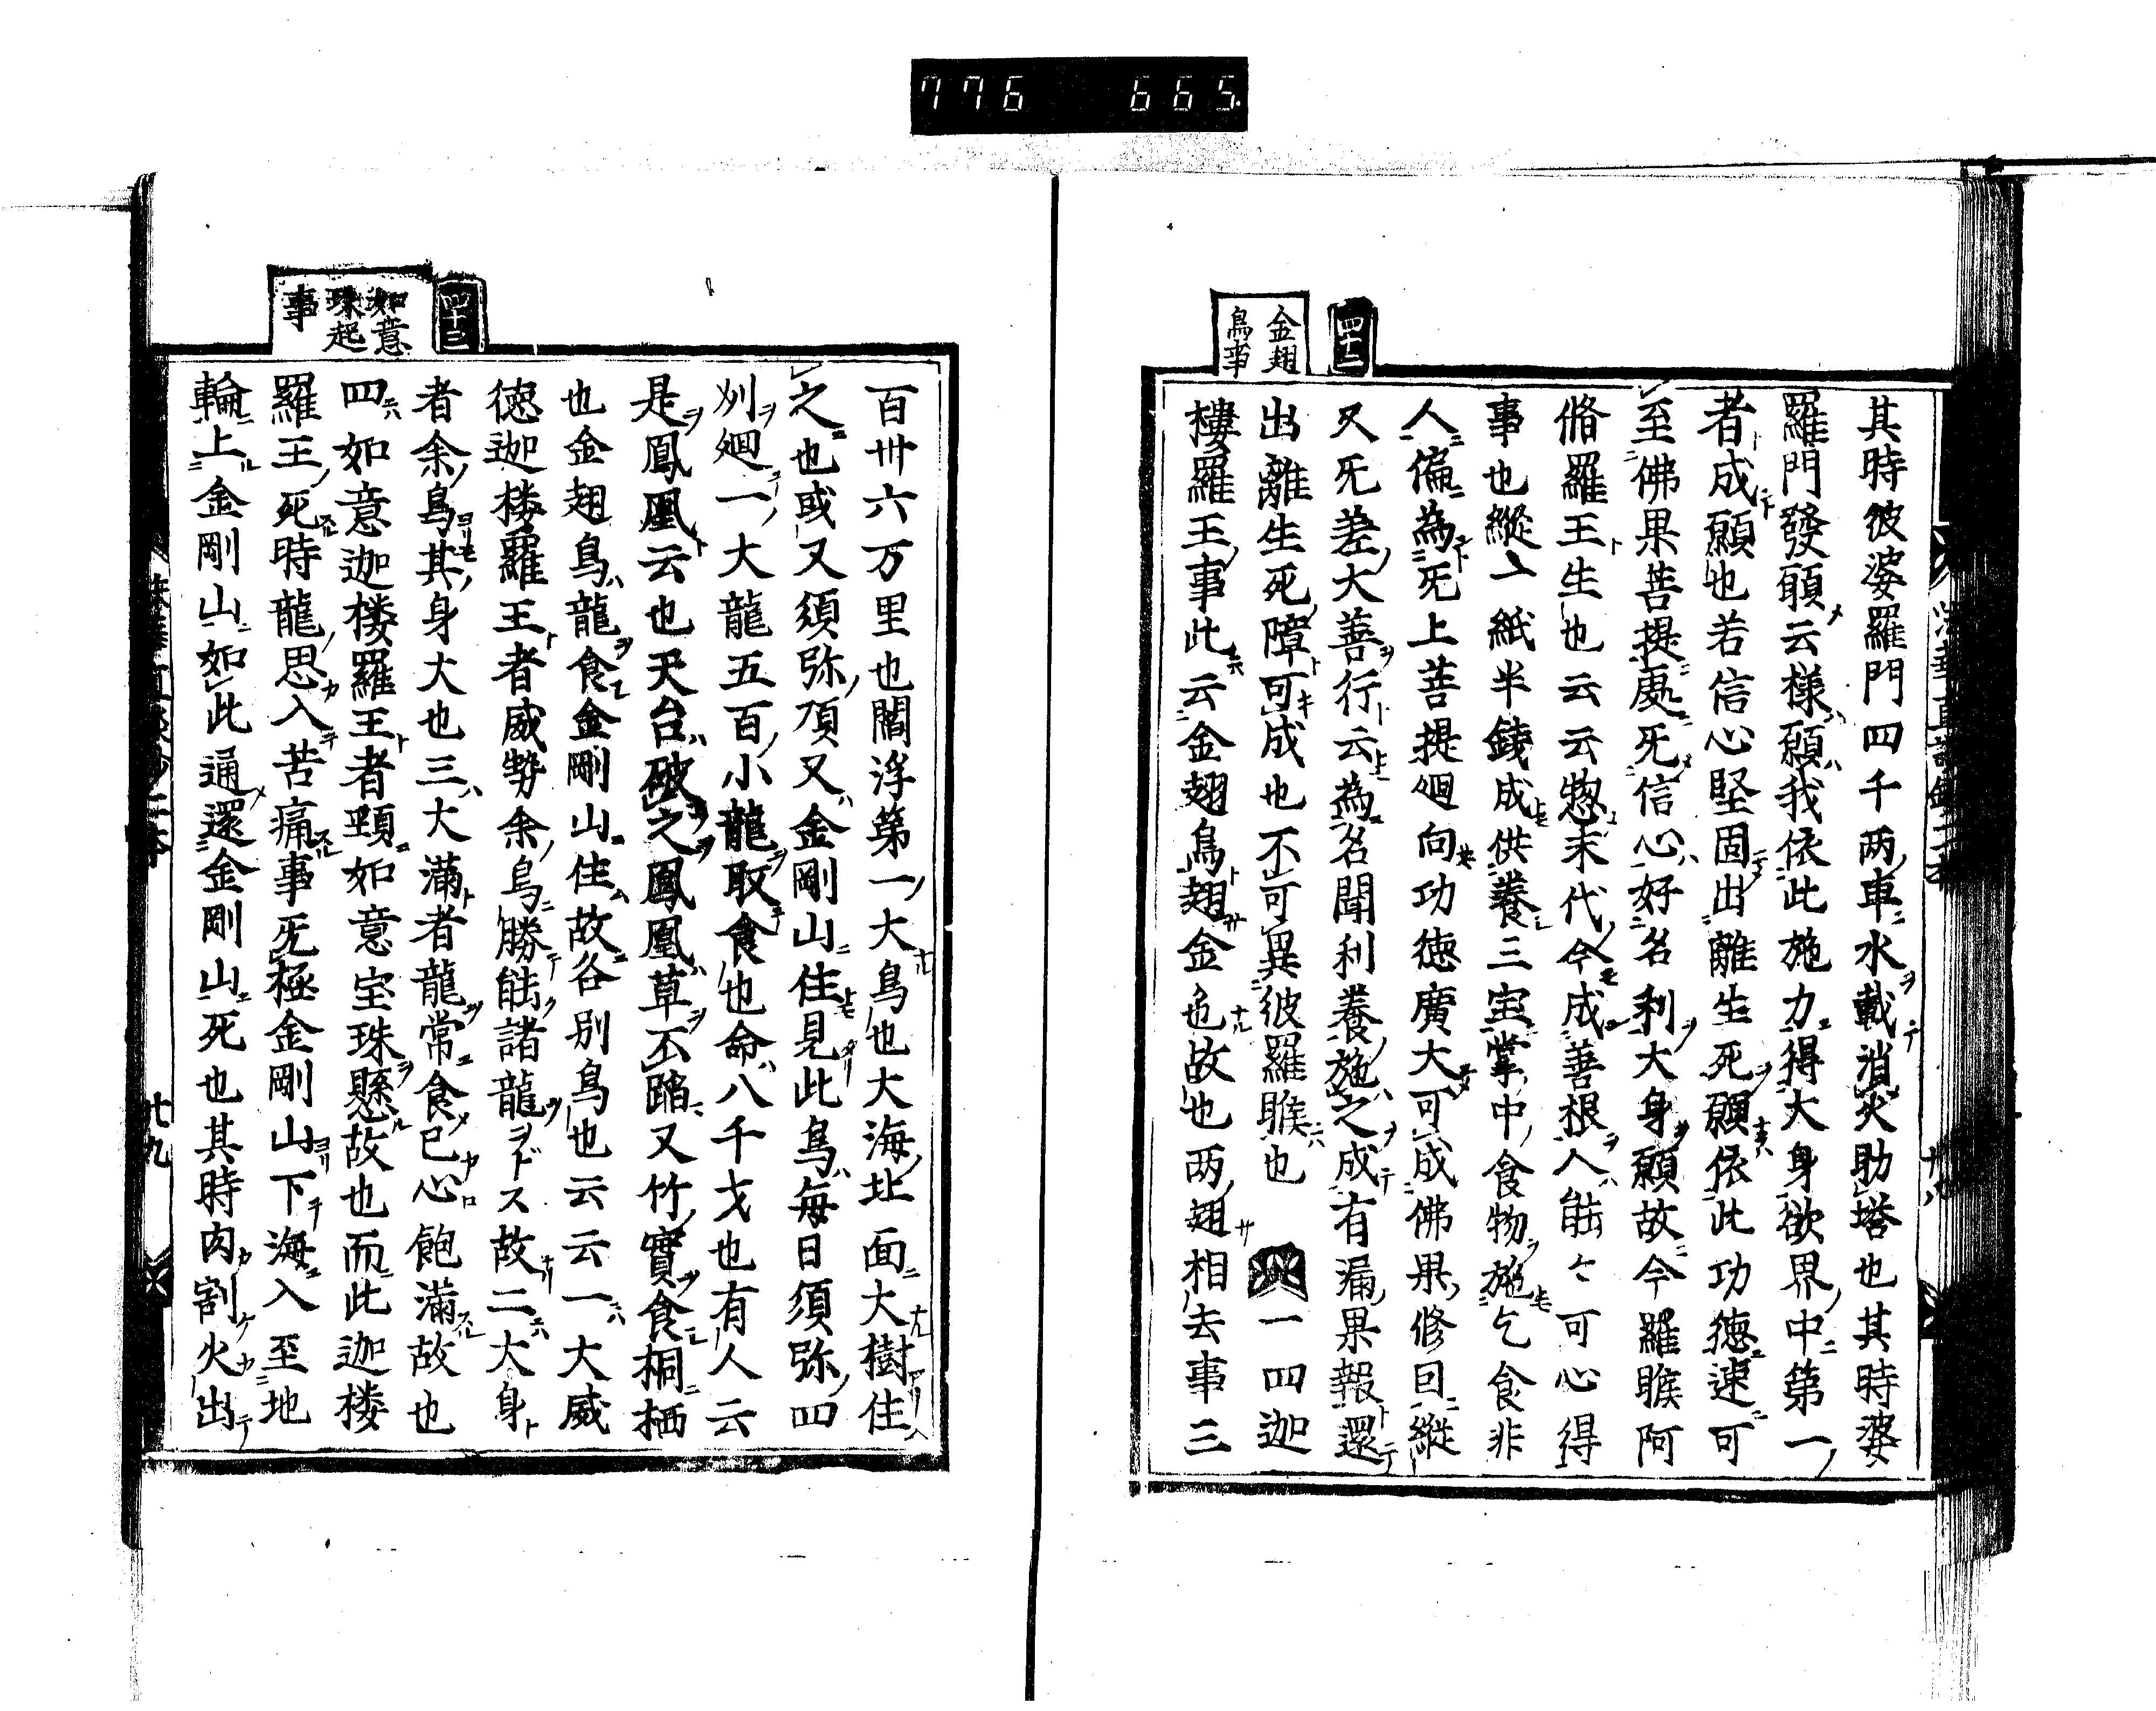 776 665
四十二
金翅
鳥事
其時彼婆羅門四千两車水載消火助塔也其時婆
羅門發願云様願我依此施力得大身欲界中第一
者成願也若信心堅固出離生死願依此功徳速可
至佛果菩提處旡信心好名利大身願故今羅睺阿
脩羅王生也云云惣末代今成善根人能〻可心得
事也縱一紙半錢成供養三宝掌中食物施乞食非
人偏為旡上菩提廻向功徳廣大可成佛果修因縱
又旡差大善行云為名聞利養施之成有漏果報還
出離生死障可成也不可異彼羅睺也 一四迦
樓羅王事此云金翅鳥翅金色故也两翅相去事三
四十三
如意
珠起
事
百卅六万里也閻浮第一大鳥也大海北面大樹住
之也或又須弥頂又金剛山住見此鳥毎日須弥四
州廻一大龍五百小龍取食也命八千才也有人云
是鳳凰云也天台破之鳳凰草不踏又竹實食桐栖
也金翅鳥龍食金剛山住故各別鳥也云云一大威
徳迦楼羅王者威勢余鳥勝能諸龍ヲドス故二大身
者余鳥其身大也三大満者龍常食已心飽満故也
四如意迦楼羅王者頸如意宝珠懸故也而此迦楼
羅王死時龍思入苦痛事旡極金剛山下海入至地
輪上金剛山如此通還金剛山死也其時肉割火出
廿九